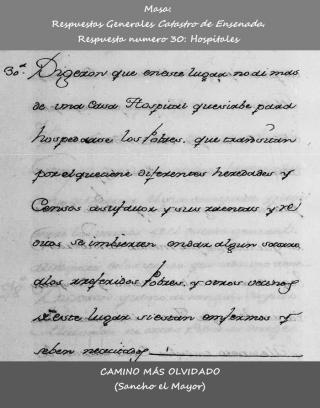 Masa:
Respuestas Generales Catastro de Ensenada.
Respuesta numero 30: Hospitales
30ª. Digeron que eneste lugar no ai mas
de una Casa Hospital quesirbe para
hospedarse los Pobres, que transitan
por el quetiene diferentes heredades y
Censos asufavor y sus rrentas y rre
se imbierten endar algun socorro
alos rreferidos Pobres, y otros vecinos
deeste lugar siestan enfermos y
seben necesitados
CAMINO MÁS OLVIDADO
(Sancho el Mayor)